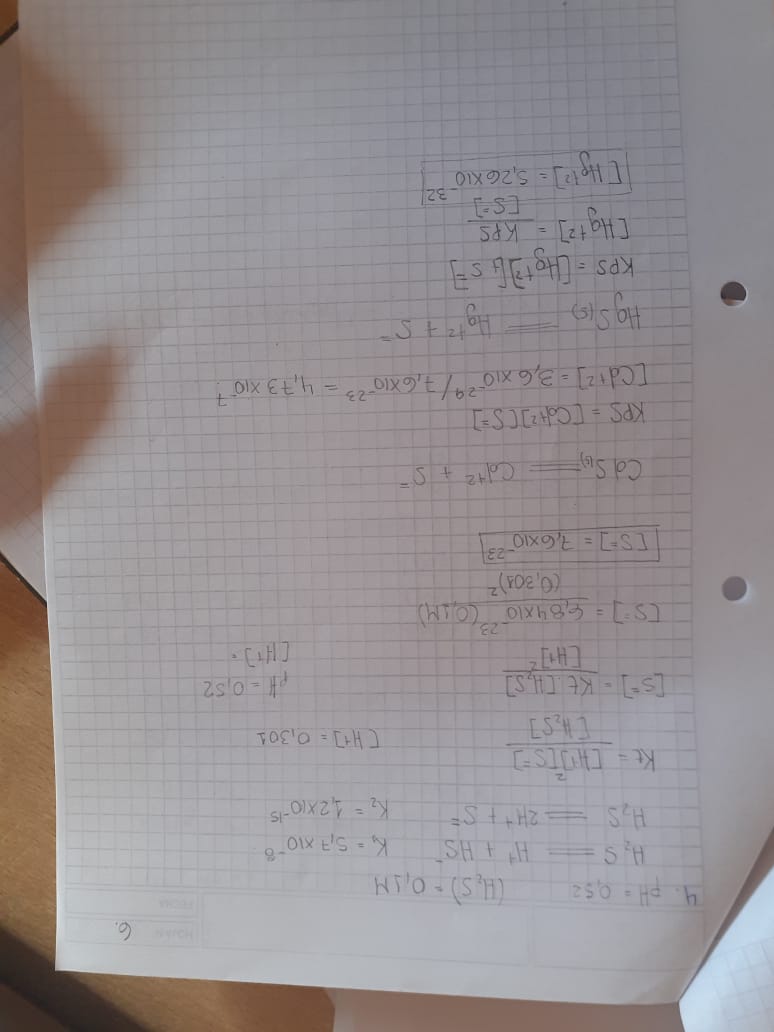 6.
4. pH = 0,52 (H₂S) = 0,1M
H₂S ══ H⁺ + HS⁻ K₁ = 5,7x10⁻⁸
H₂S ══ 2H⁺ + S⁼ K₂ = 1,2x10⁻¹⁵
Kt = [H⁺]²[S⁼] / [H₂S] [H⁺] = 0,301
[S⁼] = Kt.[H₂S] / [H⁺]² pH = 0,52
[H⁺] =
[S⁼] = 6,84x10⁻²³ (0,1M) / (0,301)²
[S⁼] = 7,6x10⁻²³
CdS₍ₛ₎ ══ Cd⁺² + S⁼
KPS = [Cd⁺²][S⁼]
[Cd⁺²] = 3,6x10⁻²⁹ / 7,6x10⁻²³ = 4,73x10⁻⁷
HgS₍ₛ₎ ══ Hg⁺² + S⁼
KPS = [Hg⁺²][+ S⁼]
[Hg⁺²] = KPS / [S⁼]
[Hg⁺²] = 5,26x10⁻³²